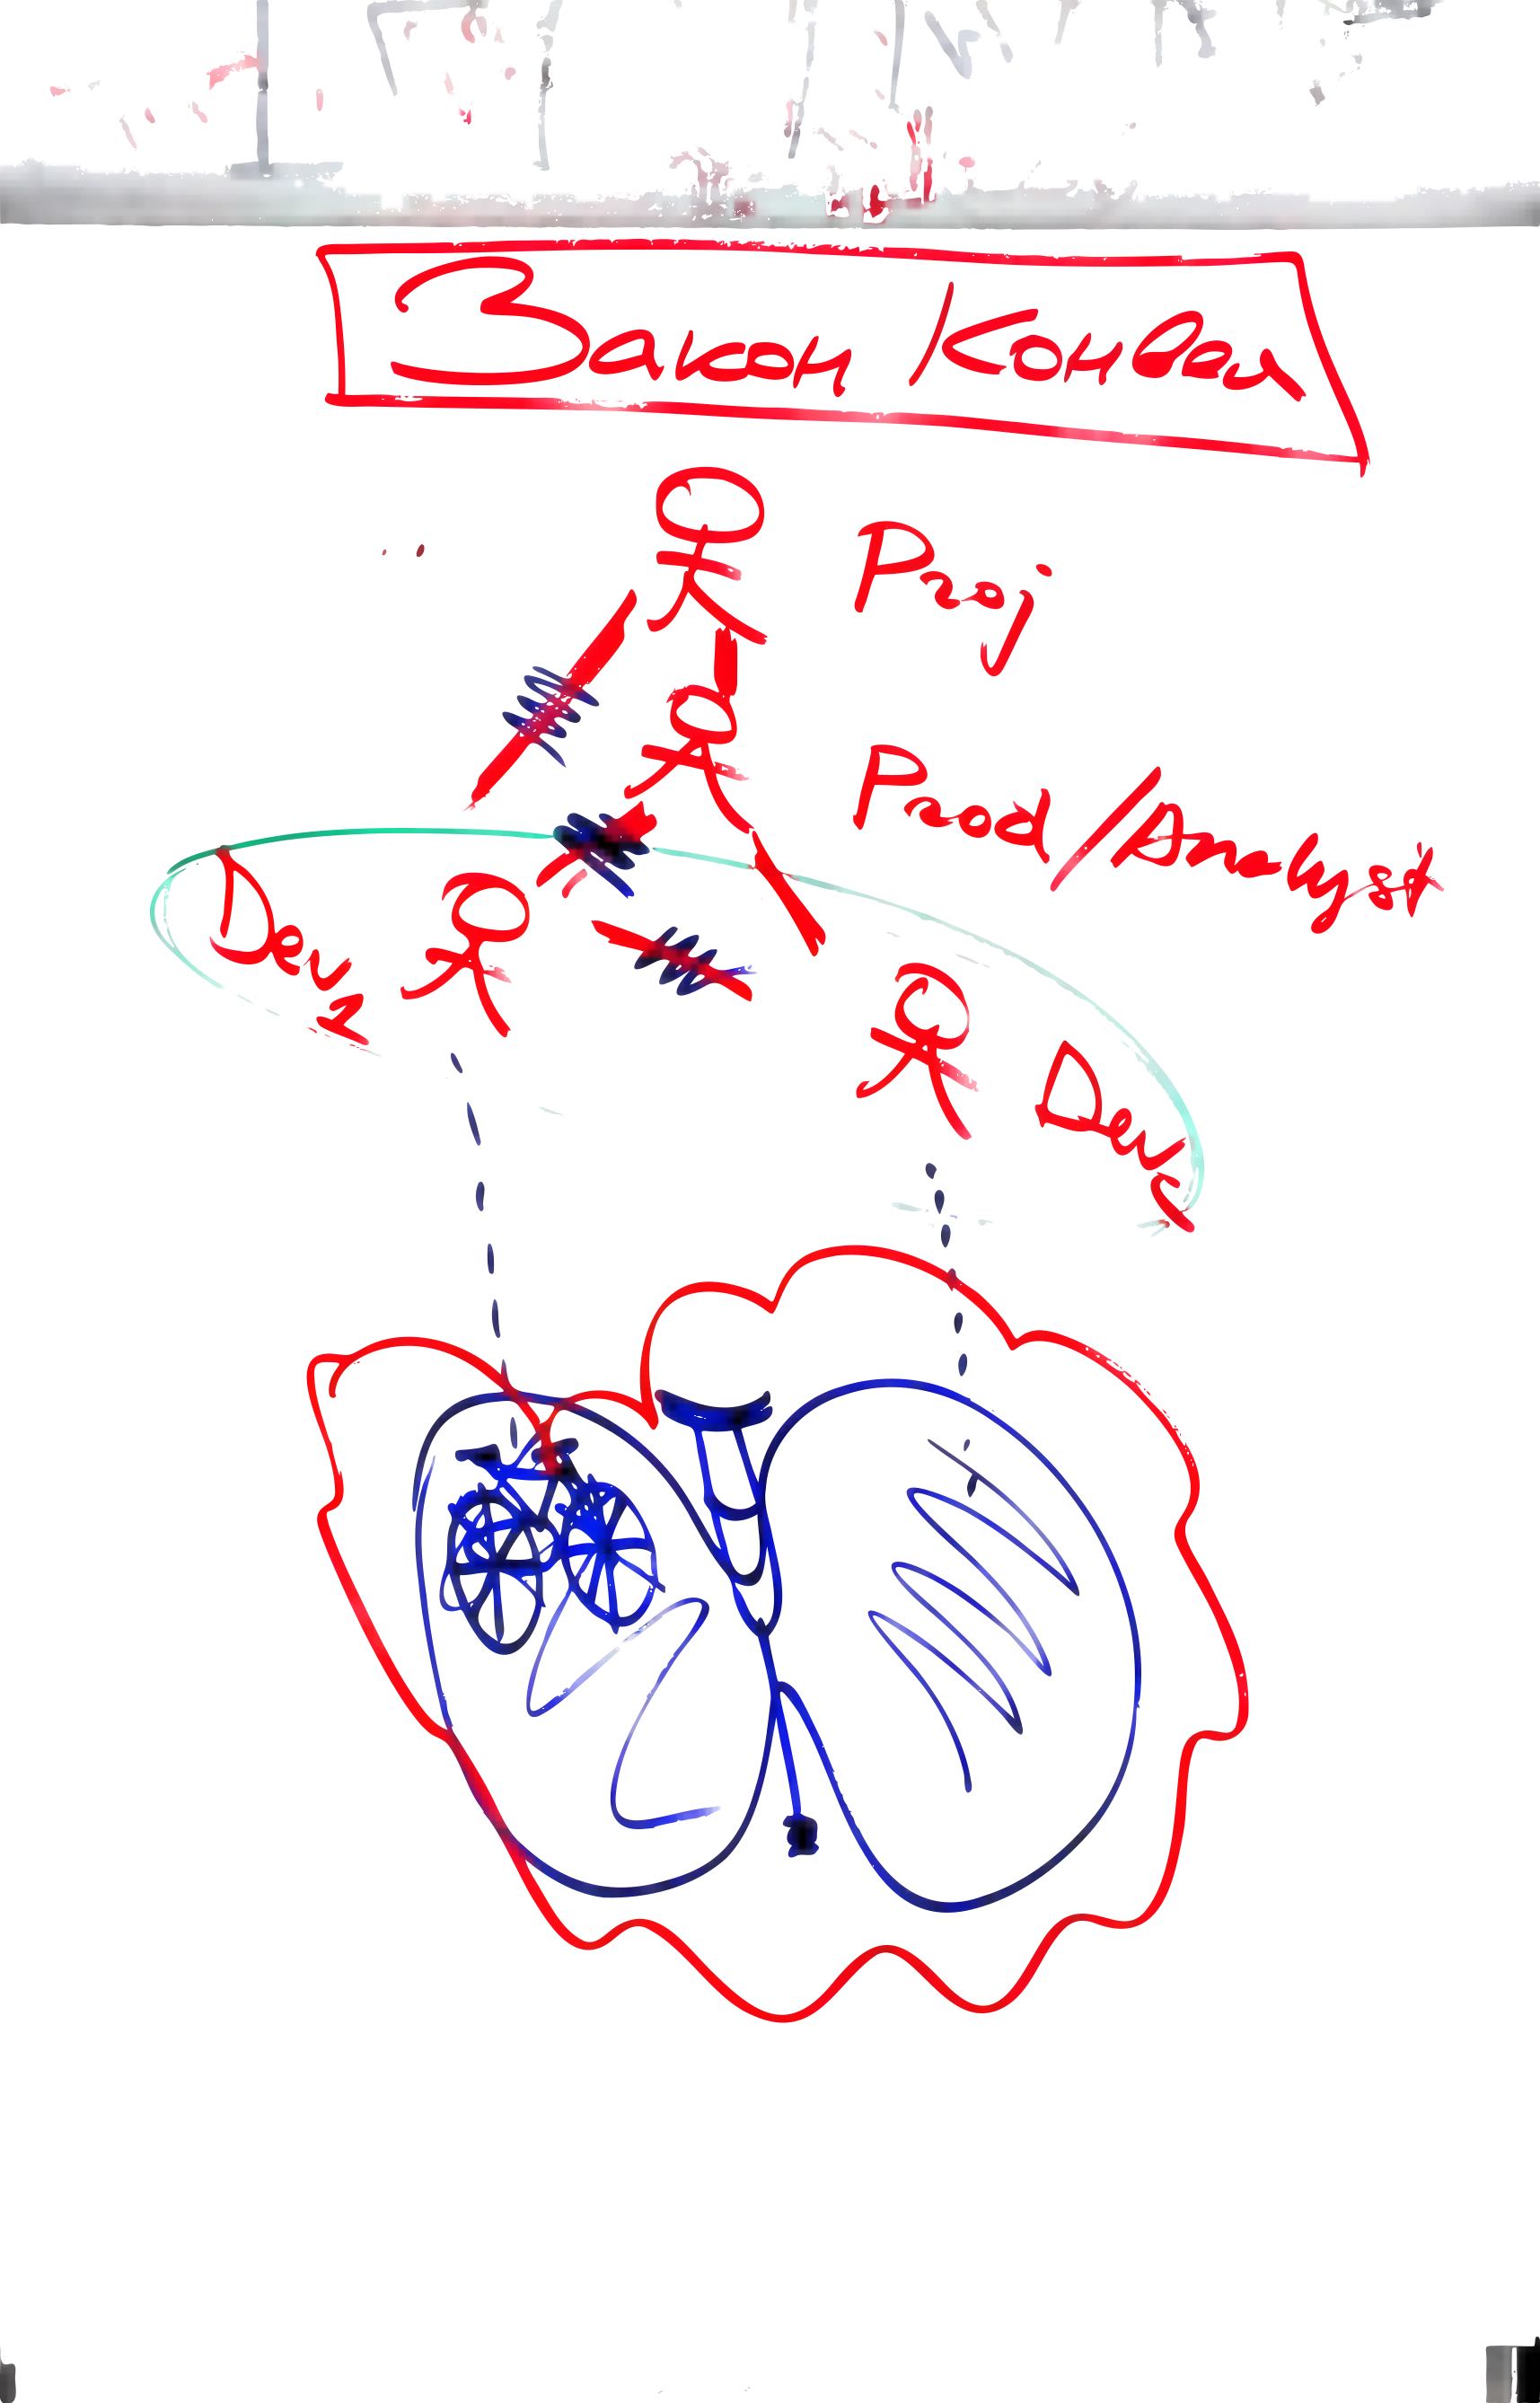 Закон Конвея
Proj
Prod/Analyst
Dev 1
Dev